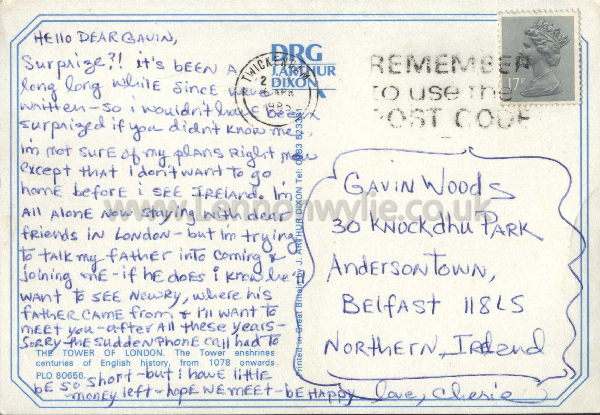 Hello Dear Gavin,
Surprize?! it's been a
long long while since we've
written - so i wouldn't have been
surprized if you didn't know me.
i'm not sure of my plans right now
except that i don't want to go
home before i see IRELAND. i'm
all alone now staying with dear
friends in London - but i'm trying
to talk my father into coming &
joining me - if he does i know he'll
want to see Newry, where his
father came from & i'll want to
meet you - after all these years -
sorry the sudden phone call had to
be so short - but i have little
money left - hope we meet - be happy
love, cherie
THE TOWER OF LONDON. The Tower enshrines
centuries of English history, from 1078 onwards.
PLO 80656
DRG
J. ARTHUR
DIXON
Printed in Great Britain by J. ARTHUR DIXON Tel: 0983 523381
TWICKENHAM
2
APR
1985
REMEMBER
to use the
POST CODE
17P
Gavin Woods
30 Knockdhu Park
Andersontown,
Belfast 11 8LS
Northern, Ireland
www.Londonwylie.co.uk